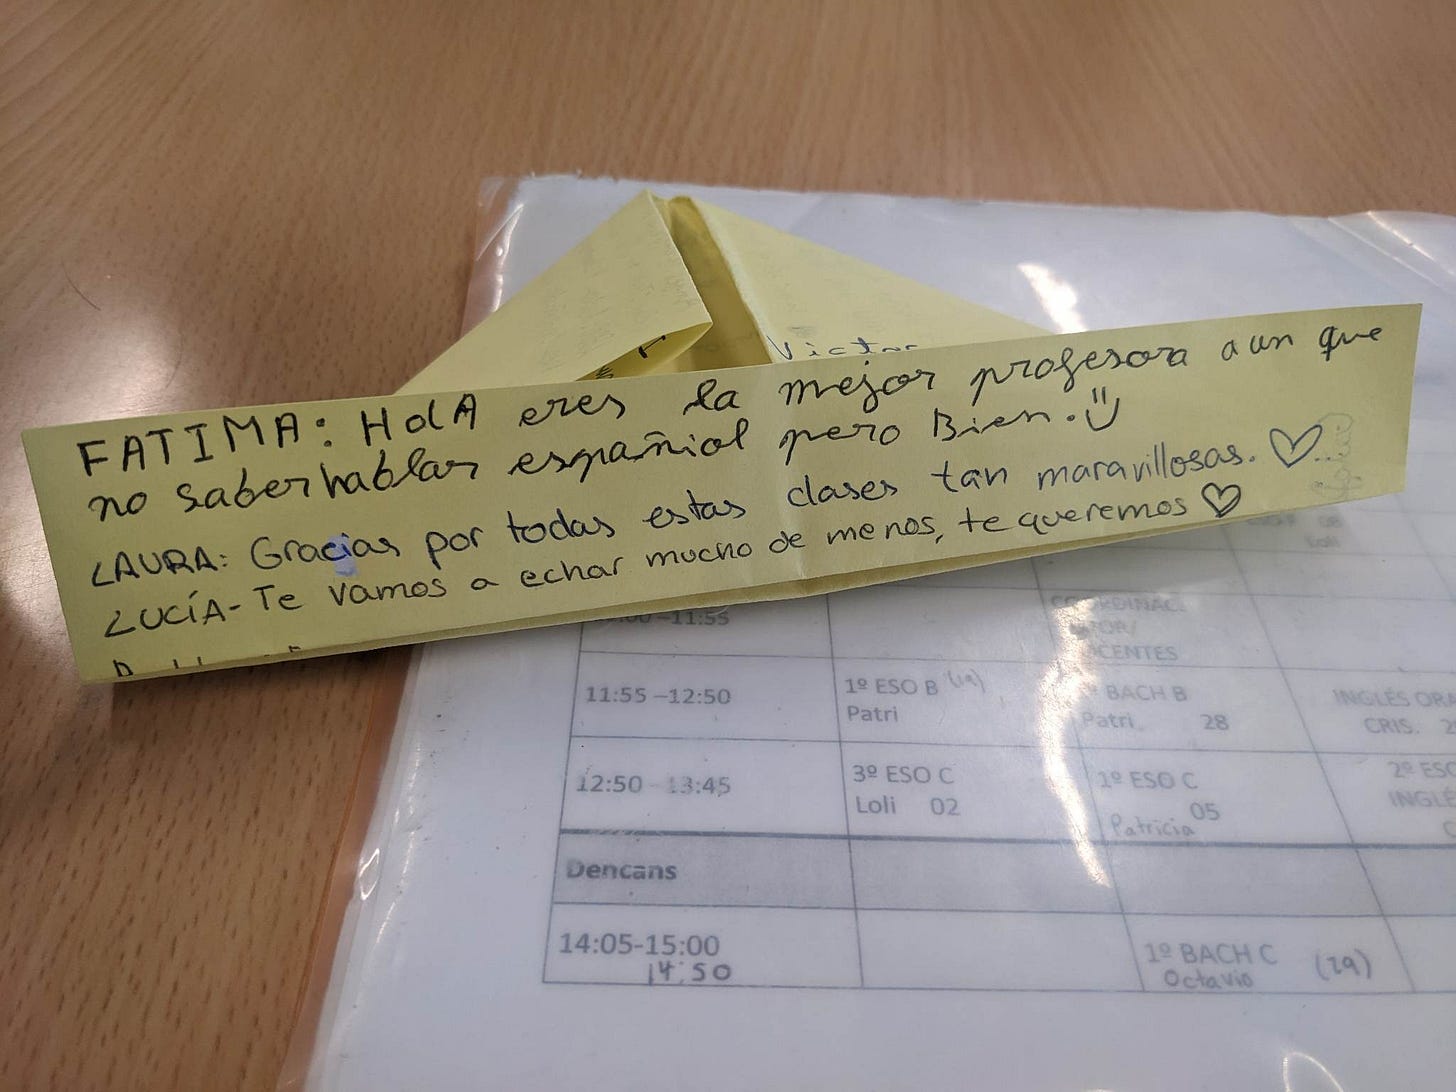 Victor
FATIMA: HolA eres la mejor profesora aun que
no saber hablar españiol pero Bien.
LAURA: Gracias por todas estas clases tan maravillosas. ♡...
LUCÍA- Te vamos a echar mucho de menos, te queremos ♡
-11:55
DOCENTES
11:55 –12:50
1º ESO B (19)
Patri
BACH B
Patri 28
INGLÉS
CRIS.
12:50 -13:45
3º ESO C
Loli 02
1º ESO C
05
Patricia
2º
Dencans
14:05-15:00
14:50
1º BACH C (19)
Octavio